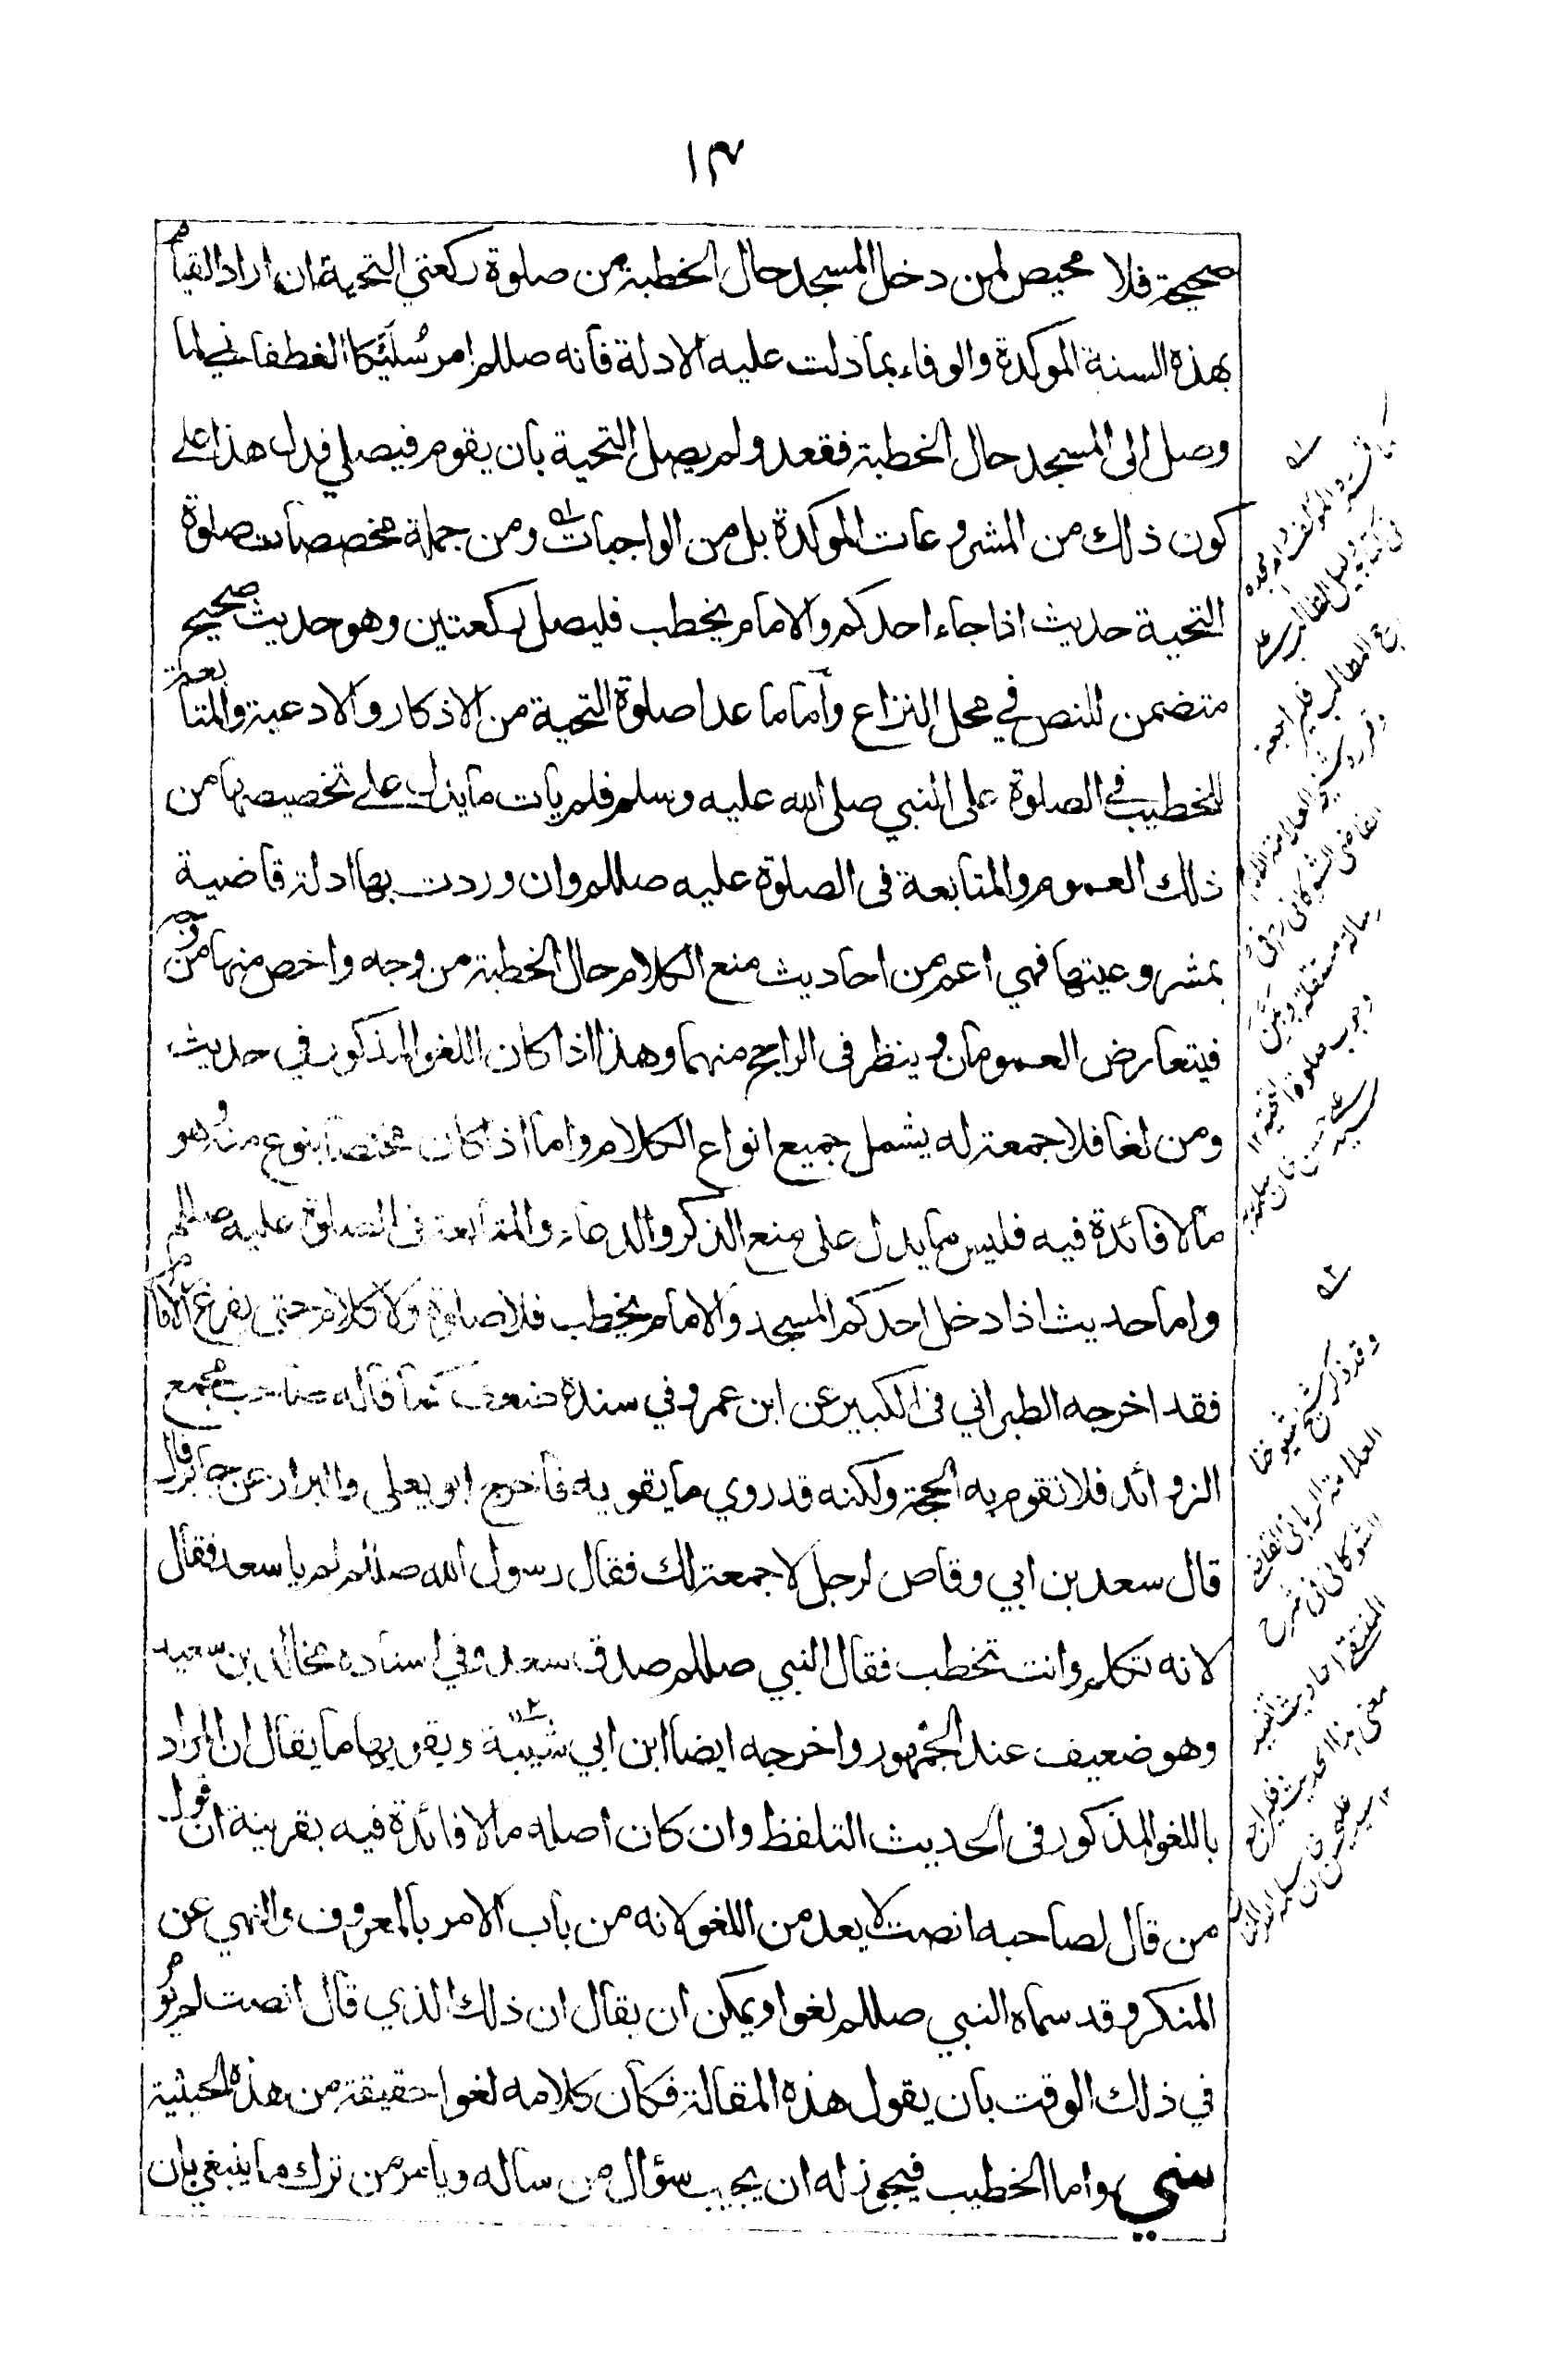 ١٣
صحيحة فلا محيص لمن دخل المسجد حال الخطبة من صلوة ركعتي التحية ان اراد القيام
بهذه السنة الموكدة والوفاء بما دلت عليه الادلة فانه صللم امر سُلَيكا الغطفاني لما
وصل الى المسجد حال الخطبة فقعد ولم يصل التحية بان يقوم فيصلي فدل هذا على
كون ذلك من المشروعات الموكدة بل من الواجبات ومن جملة مخصصات صلوة
التحية حديث اذا جاء احدكم والامام يخطب فليصل ركعتين وهو حديث صحيح
متضمن للنص في محل النزاع وأما ما عدا صلوة التحية من الاذكار والادعية والمتابعة
للخطيب في الصلوة على النبي صلى الله عليه وسلم فلم يات ما يدل على تخصيصها من
ذلك العموم والمتابعة فى الصلوة عليه صللم وان وردت بها ادلة قاضية
بمشروعيتها فهي اعم من احاديث منع الكلام حال الخطبة من وجه واخص منها من وجه
فيتعارض العمومان وينظر فى الراجح منهما وهذا اذا كان اللغو المذكور في حديث
ومن لغا فلا جمعة له يشمل جميع انواع الكلام واما اذا كان مختصا بنوع منه وهو
ما لا فائدة فيه فليس مما يدل على منع الذكر والدعاء والمتابعة فى الصلوة عليه صللم
واما حديث اذا دخل احدكم المسجد والامام يخطب فلا صلوة ولا كلام حتى يفرغ الامام
فقد اخرجه الطبراني فى الكبير عن ابن عمر وفي سنده ضعف كما قاله صاحب مجمع
الزوائد فلا تقوم به الحجة ولكنه قد روي ما يقويه فاخرج ابو يعلى والبزار عن جابر قال
قال سعد بن ابي وقاص لرجل لا جمعة لك فقال رسول الله صللم لم يا سعد فقال
لانه تكلم وانت تخطب فقال النبي صللم صدق سعد وفي اسناده مخالد بن سعيد
وهو ضعيف عند الجمهور واخرجه ايضا ابن ابي شيبة ويقويهما ما يقال ان المراد
باللغو المذكور فى الحديث التلفظ وان كان اصله ما لا فائدة فيه بقرينة ان قول
من قال لصاحبه انصت لا يعد من اللغو لانه من باب الامر بالمعروف والنهي عن
المنكر وقد سماه النبي صللم لغوا ويمكن ان يقال ان ذلك الذي قال انصت لم يؤمر
في ذلك الوقت بان يقول هذه المقالة فكان كلامه لغوا حقيقة من هذه الحيثية
سني واما الخطيب فيجوز له ان يجيب سؤال من ساله ويامر من ترك ما ينبغي بان
دليل الطالب على
ارجح المطالب فليراجعه
القاضي الشوكاني في
رسالة مستقلة وبين
وجوب صلوة التحية ١٢
وقد ذكر شيخ شيوخنا
العلامة الرباني القاضي
الشوكاني في شرح
المنتقى احاديث تفيد
معنى هذا الحديث فليراجع